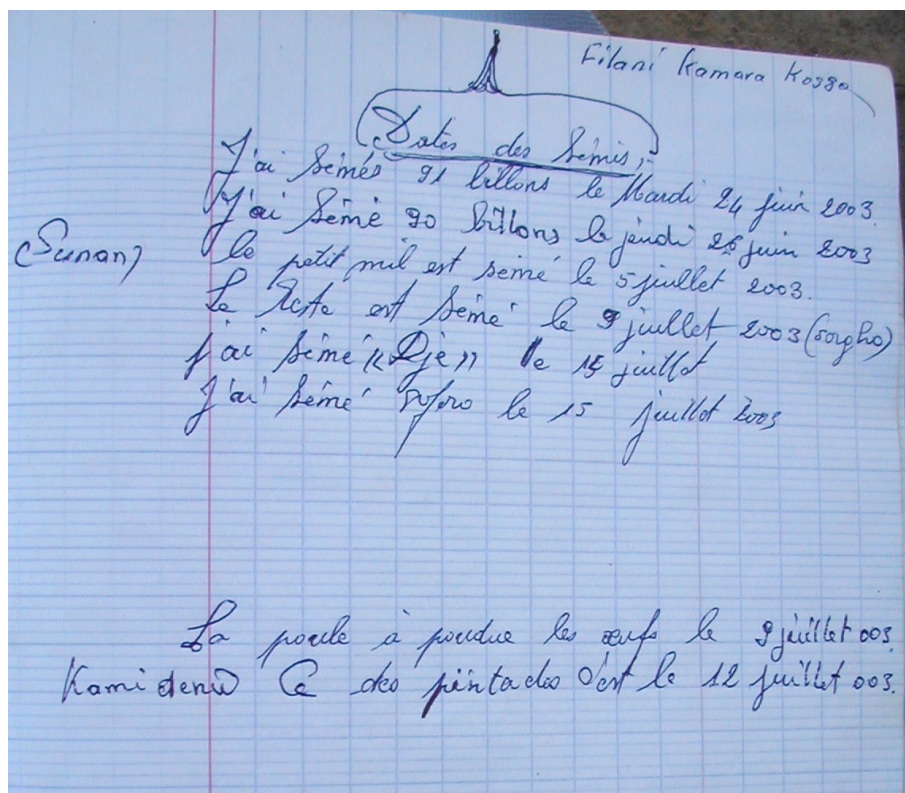 Filani Kamara Kosso
Dates des Sémis,-
J'ai Sémés 91 billons le Mardi 24 juin 2003.
J'ai Sémé 90 billons le jeudi 26 juin 2003
(Sunan) le petit mil est semé le 5 juillet 2003.
Le Reste est Sémé le 9 juillet 2003 (sorgho)
j'ai Sémé «Dje» le 15 juillet
J'ai Sémé le 15 juillet 2003
La poule à pondue les œufs le 9 juillet 003.
Kami denw Ce des pintades c'est le 12 juillet 003.